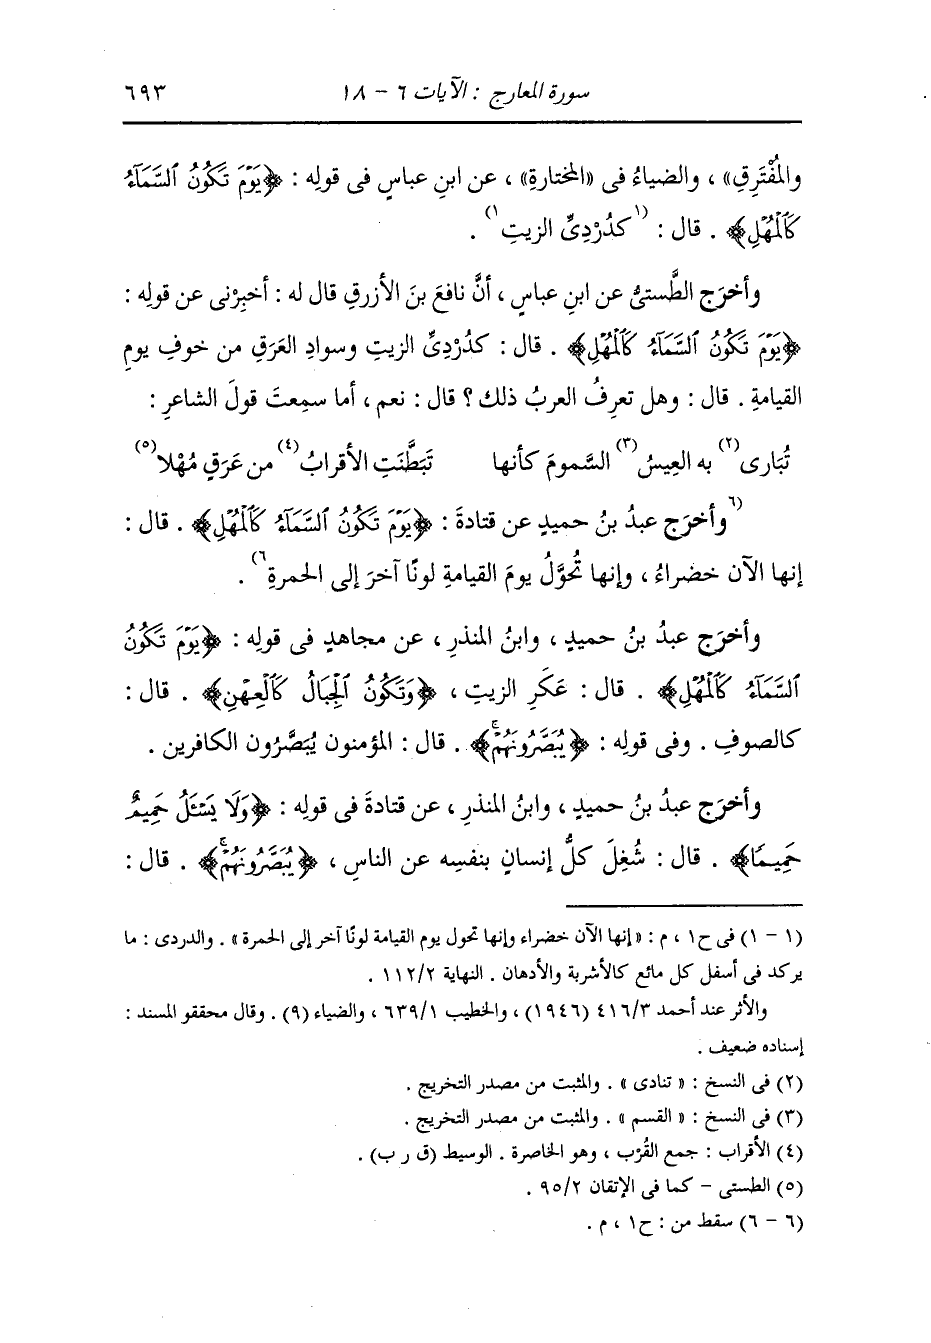 سورة المعارج : الآيات ٦ - ١٨ ٦٩٣
والمُفْتَرِقِ» ، والضياءُ فى «المختارةِ» ، عن ابنِ عباسٍ فى قولِه : ﴿يَوْمَ تَكُونُ ٱلسَّمَآءُ
كَٱلْمُهْلِ﴾ . قال : (١كدُرْدِىِّ الزيتِ١) .
وأخرَج الطَّستىُّ عن ابنِ عباسٍ ، أنَّ نافعَ بنَ الأزرقِ قال له : أخبِرْنى عن قولِه :
﴿يَوْمَ تَكُونُ ٱلسَّمَآءُ كَٱلْمُهْلِ﴾ . قال : كدُرْدِىِّ الزيتِ وسوادِ العَرَقِ من خوفِ يومِ
القيامةِ . قال : وهل تعرِفُ العربُ ذلك ؟ قال : نعم ، أما سمِعتَ قولَ الشاعرِ :
تُبارى(٢) به العِيسُ(٣) السَّمومَ كأنها تَبَطَّنَتِ الأقرابُ(٤) من عَرَقٍ مُهْلا(٥)
(٦وأخرَج عبدُ بنُ حميدٍ عن قتادةَ : ﴿يَوْمَ تَكُونُ ٱلسَّمَآءُ كَٱلْمُهْلِ﴾ . قال :
إنها الآن خضراءُ ، وإنها تُحوَّلُ يومَ القيامةِ لونًا آخرَ إلى الحمرةِ٦) .
وأخرَج عبدُ بنُ حميدٍ ، وابنُ المنذرِ ، عن مجاهدٍ فى قولِه : ﴿يَوْمَ تَكُونُ
ٱلسَّمَآءُ كَٱلْمُهْلِ﴾ . قال : عَكَرِ الزيتِ ، ﴿وَتَكُونُ ٱلْجِبَالُ كَٱلْعِهْنِ﴾ . قال :
كالصوفِ . وفى قولِه : ﴿يُبَصَّرُونَهُمْۚ﴾ . قال : المؤمنون يُبَصَّرُون الكافرين .
وأخرَج عبدُ بنُ حميدٍ ، وابنُ المنذرِ ، عن قتادةَ فى قولِه : ﴿وَلَا يَسْـَٔلُ حَمِيمٌ
حَمِيمًا﴾ . قال : شُغِلَ كلُّ إنسانٍ بنفسِه عن الناسِ ، ﴿يُبَصَّرُونَهُمْۚ﴾ . قال :
(١ - ١) فى ح١ ، م : «إنها الآن خضراء وإنها تحول يوم القيامة لونًا آخر إلى الحمرة» . والدردى : ما
يركد فى أسفل كل مائع كالأشربة والأدهان . النهاية ١١٢/٢ .
والأثر عند أحمد ٤١٦/٣ (١٩٤٦) ، والخطيب ٦٣٩/١ ، والضياء (٩) . وقال محققو المسند :
إسناده ضعيف .
(٢) فى النسخ : « تنادى » . والمثبت من مصدر التخريج .
(٣) فى النسخ : « القسم » . والمثبت من مصدر التخريج .
(٤) الأقراب : جمع القُرْب ، وهو الخاصرة . الوسيط (ق ر ب) .
(٥) الطستى - كما فى الإتقان ٩٥/٢ .
(٦ - ٦) سقط من : ح١ ، م .